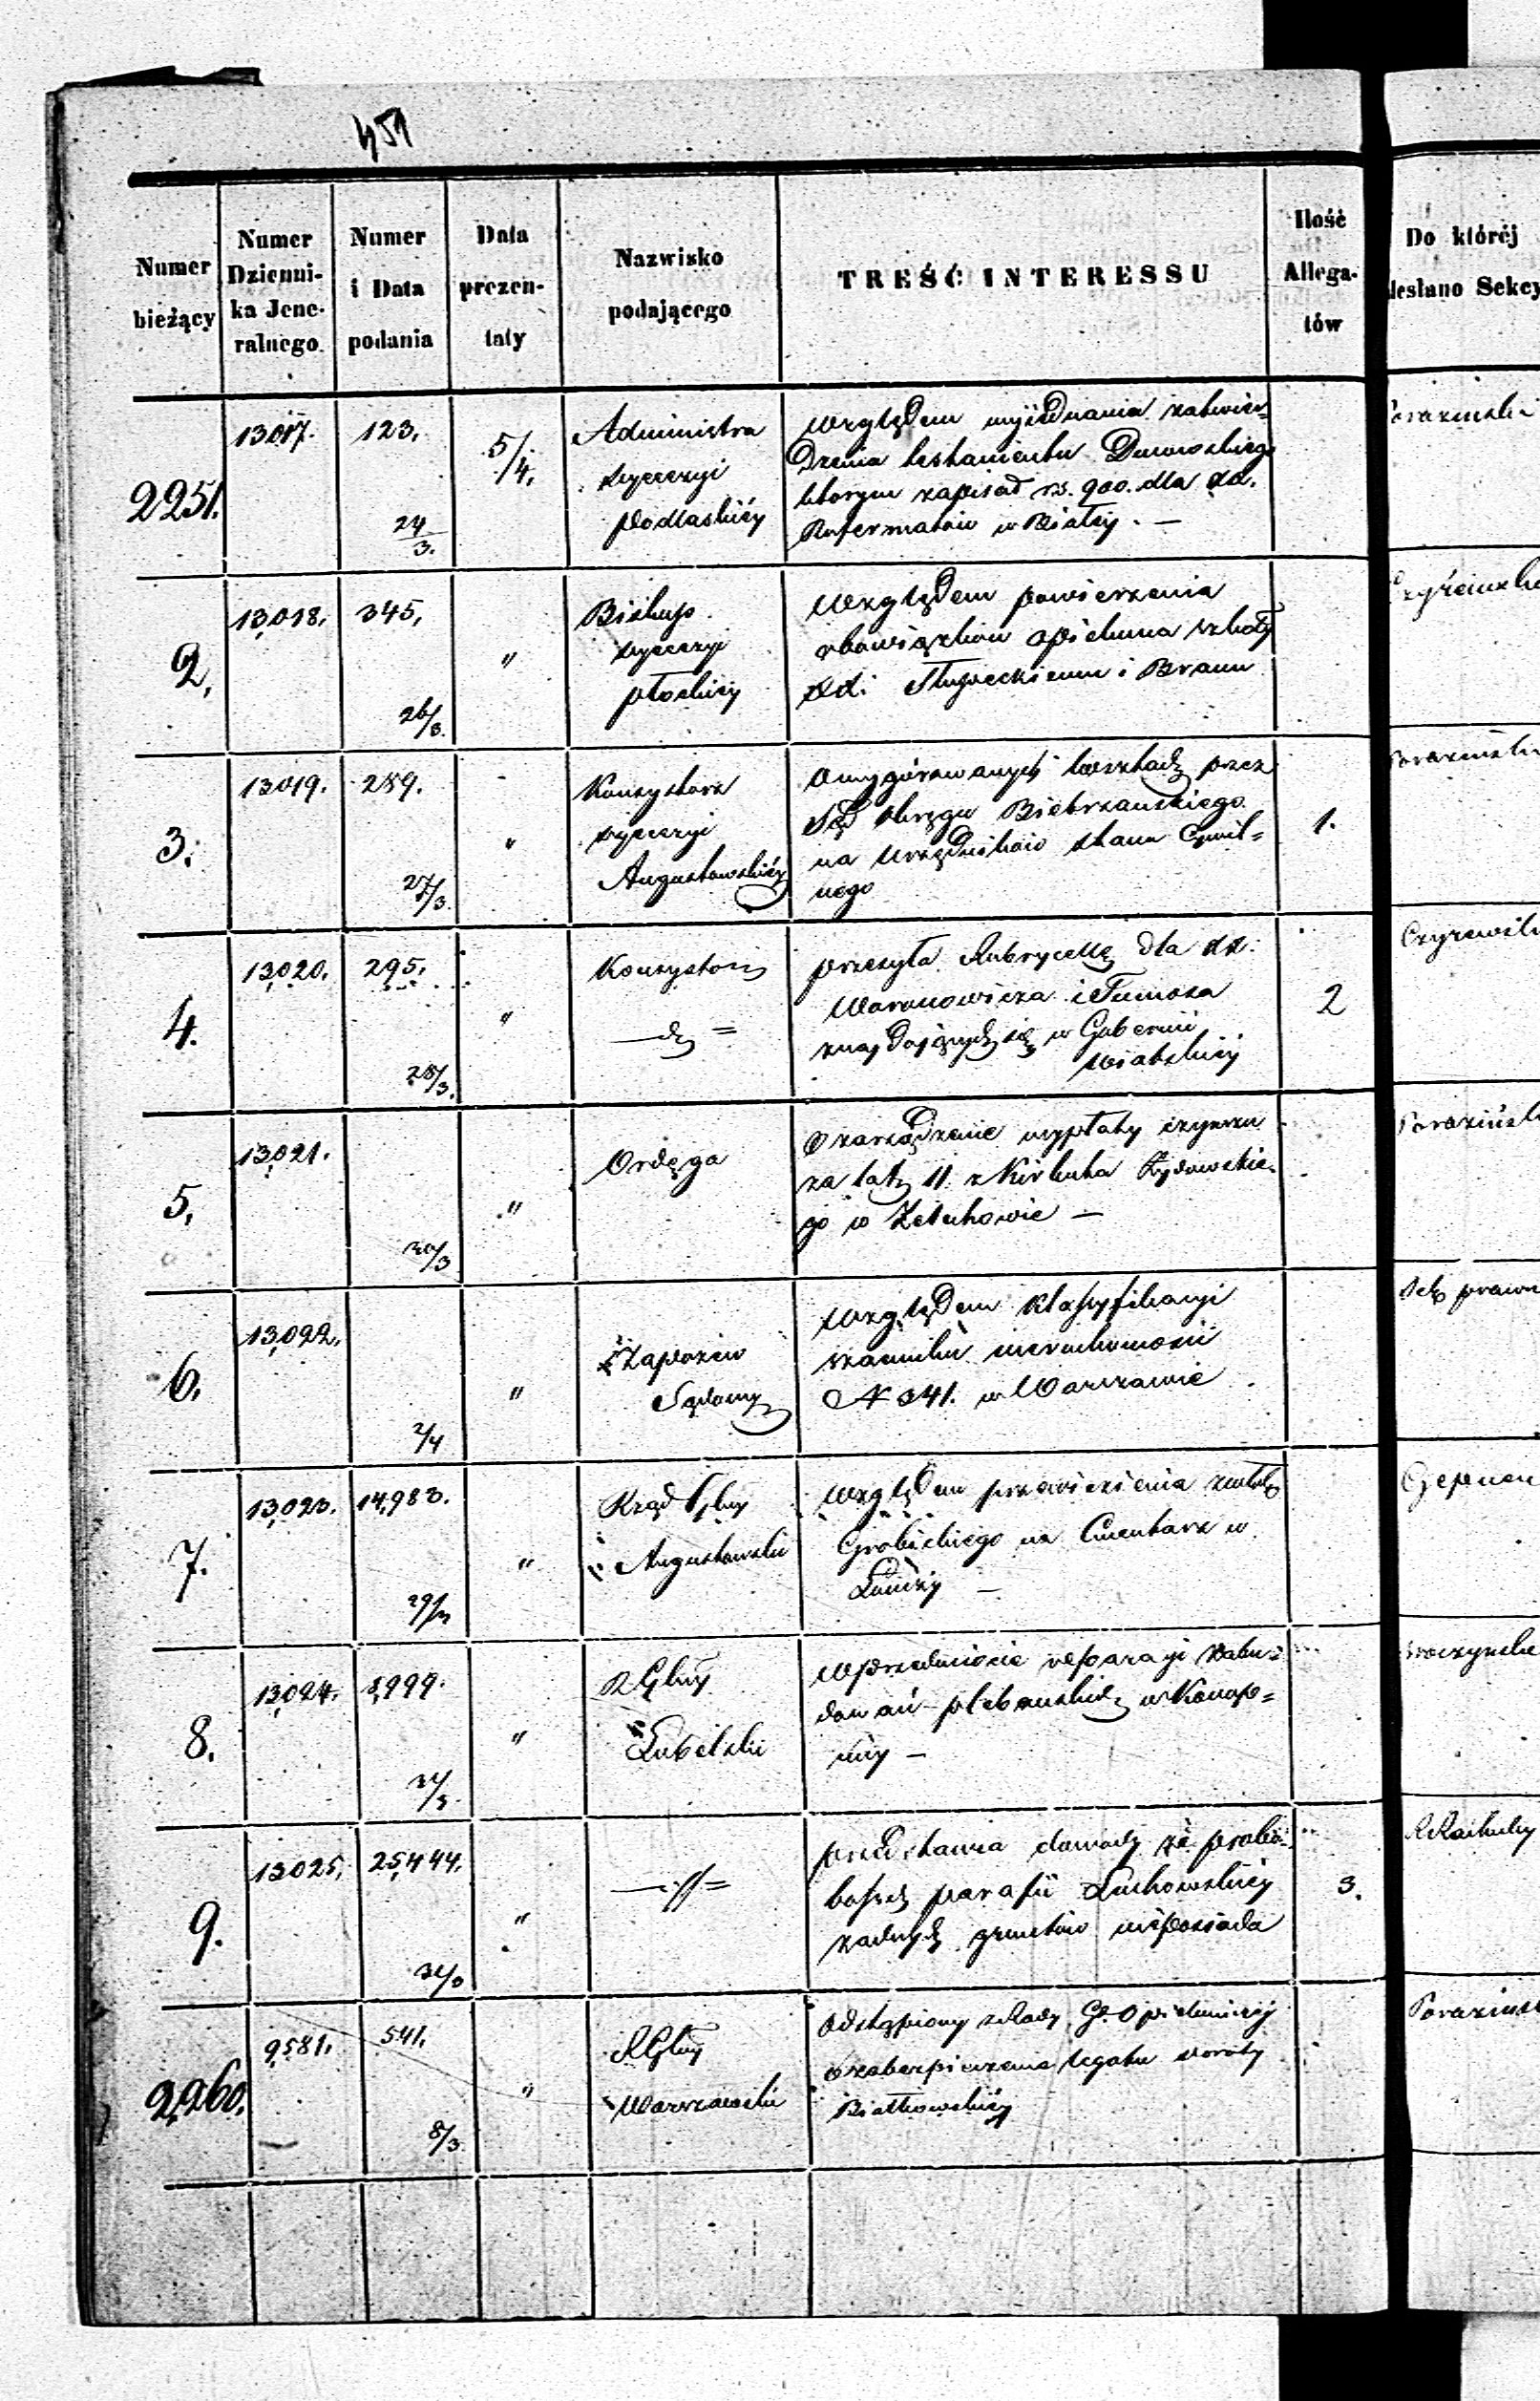 451
Numer bieżący
Numer Dzienni-
ka Jene-
ralnego.
Numer
i Data
podania
Data
prezen-
taty
Nazwisko
podającego
TREŚĆ INTERESSU
Ilość
Allega-
tów
Do któréj
desłano Sekcy
2251.
13017.
123.
24/3.
5/4.
Administra
dyecezyi
Podlaskiéj
Względem wyjednania zatwier=
dzenia testamentu
którym zapisał rs. 900. dla xx.
Reformatów w Białéj. —
2,
13,018.
345,
26/3.
"
Biskup
dyecezyi
Płockiéj
Względem powierzenia
obowiązków opiekuna szkoły
xx: Słupeckiemu i Braun
3.
13019.
289.
27/3.
"
Konsystorz
dyecezyi
Augustowskiéj
O wygórowanych kosztach przez
Sąd Okręgu Biebrzańskiego
na Urzędników stanu Cywil=
nego
1.
4.
13,020.
295.
28/3.
"
Konsystorz
— =
przesyła Rubrycellę dla xx:
Waronowicza i Tumosa
znajdujących się w Gubernii
Wiatskiéj
2
5,
13,021.
30/3
"
Ordęga
O zarządzenie wypłaty czynszu
za lat 11 z Kirkuta Żydowskie=
go w Żelechowie —
6.
13,022.
2/4
"
Zapozew
Sądowy
Względem klassyfikacyi
szacunku nieruchomości
N 341. w Warszawie
Sek prawn
7.
13,023.
14,983.
29/3
"
Rząd Gbny
Augustowski
Względem przewiezienia zwłok
Grobickiego na Cmentarz w
Łomży —
8.
13,024.
31/3
"
R Gbny
Lubelski
W przedmiocie reparacyi zabu=
dowań plebańskich w Konop=
nicy —
9.
13025.
25,444.
31/3
"
—//=
przedstawia dowody że probo=
boszcz parafii Łuchowskiéj
żadnych gruntów nieposiada
3.
2,260.
9,581.
541.
8/3.
"
R Gbny
Warszawski
Odstąpiony z Rady Gł. Opiekuńczéj
o zabezpieczenia legatu Doroty
Białkowskiéj